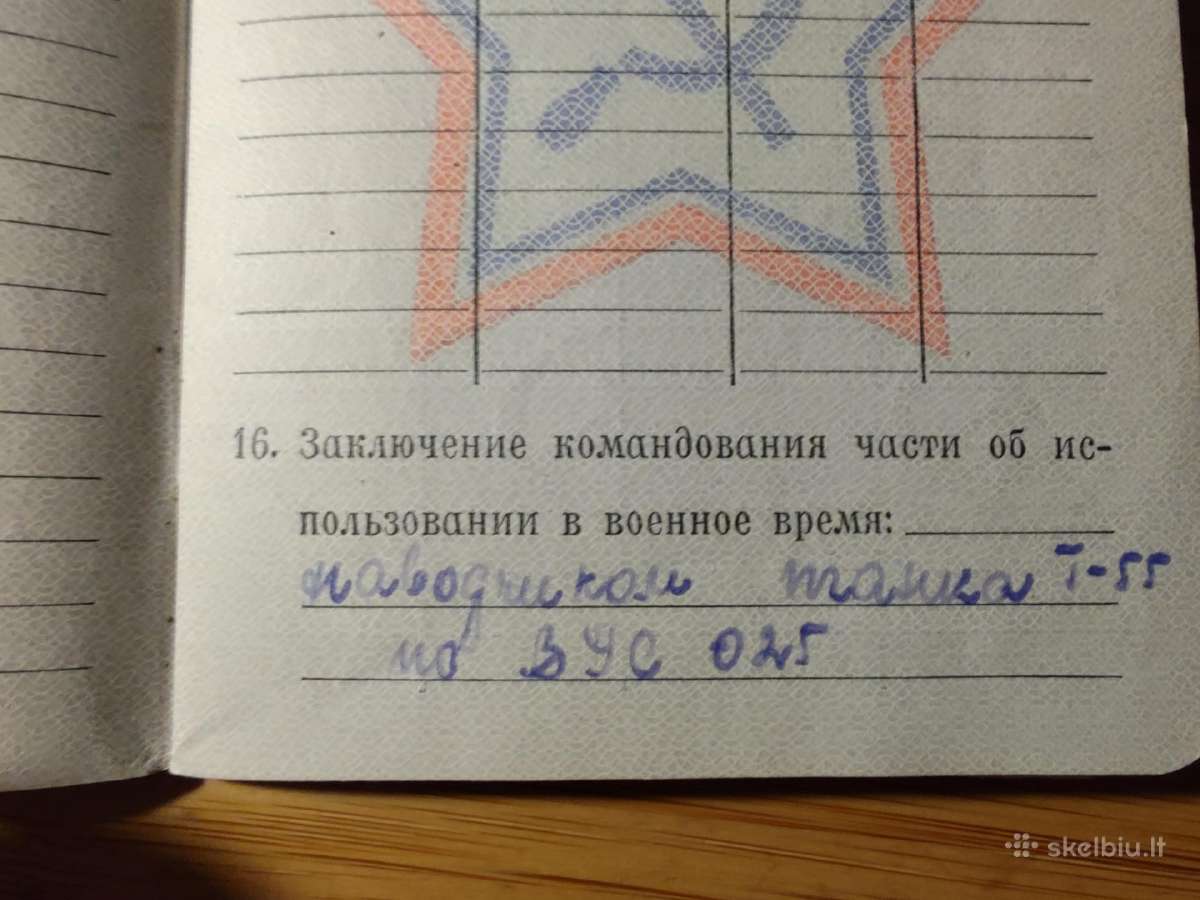 16. Заключение командования части об ис-
пользовании в военное время:
наводчиком танка Т-55
по ВУС 025
skelbiu.lt